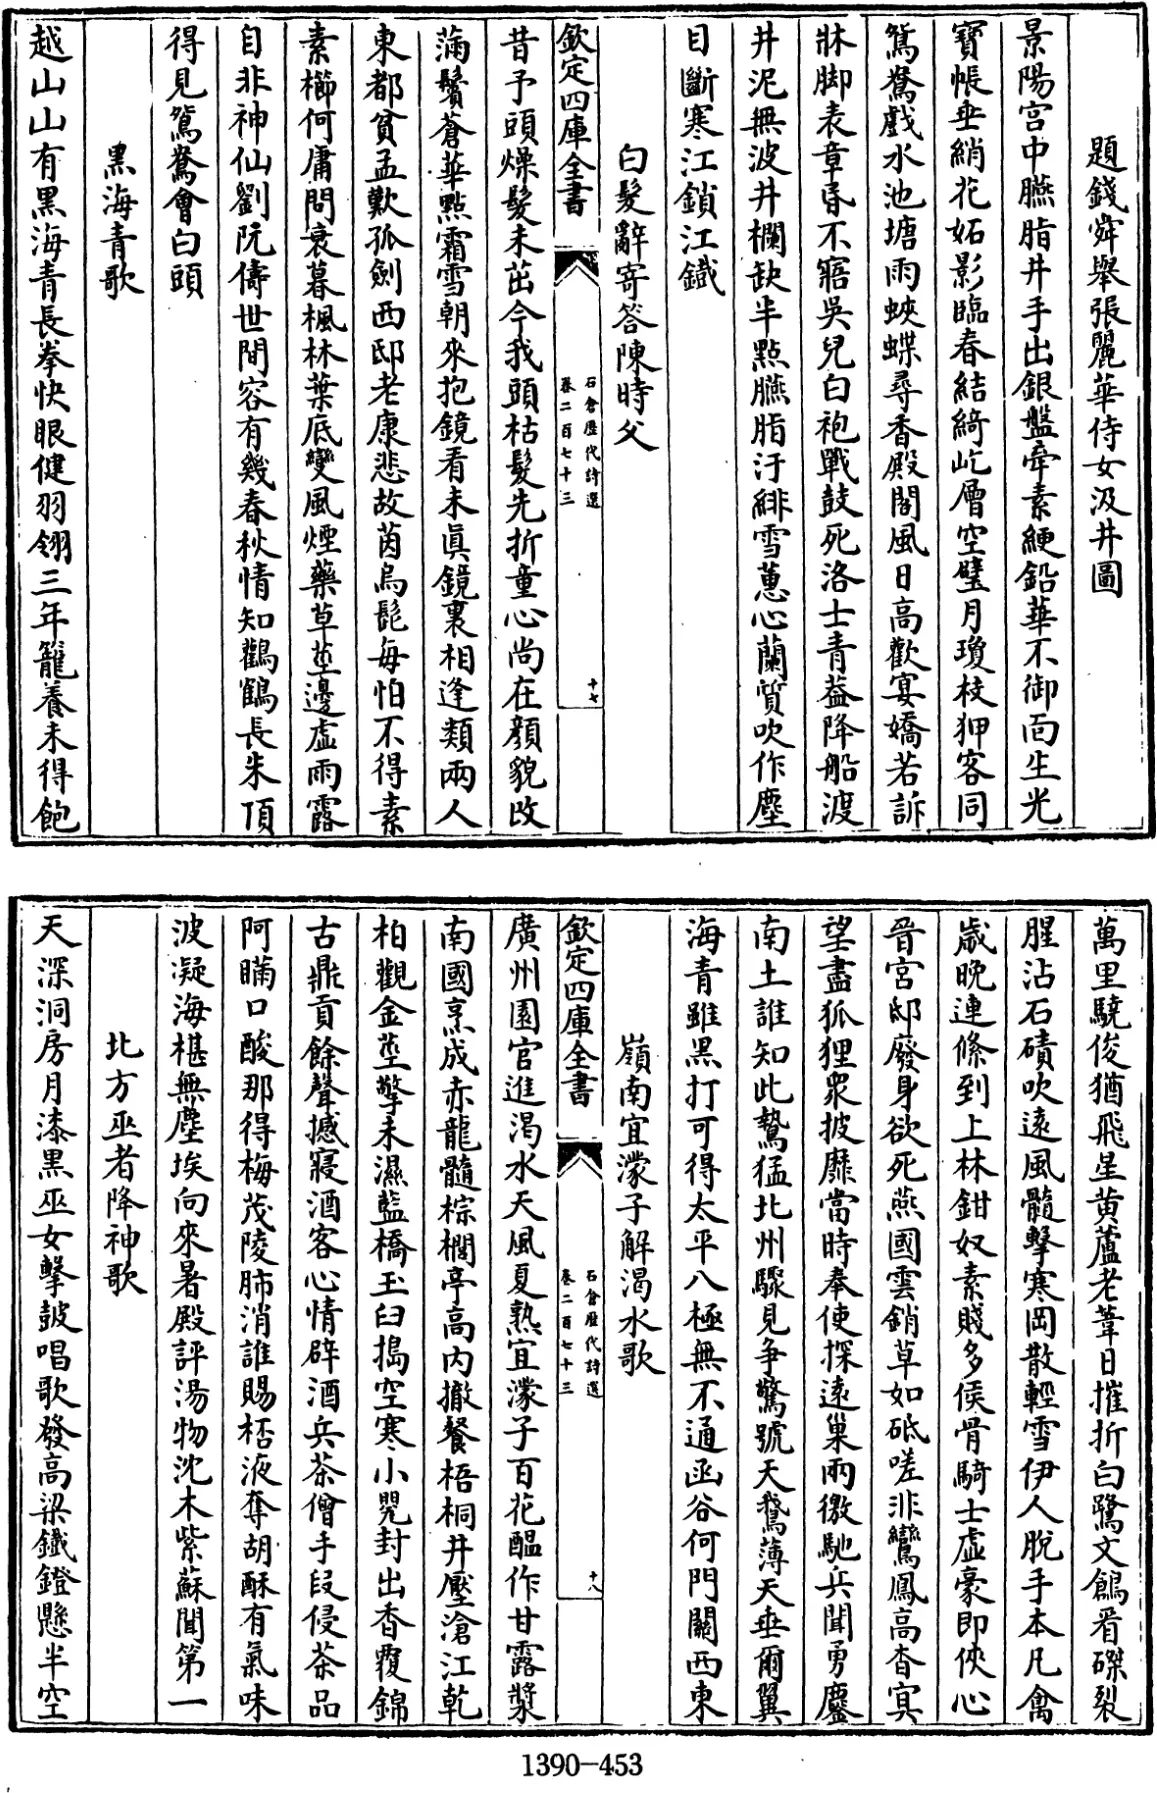 題錢舜舉張麗華侍女汲井圖
景陽宫中臙脂井手出銀盤牽素綆鉛華不御面生光
寶帳垂綃花妬影臨春結綺屹層空璧月瓊枝狎客同
鴛鴦戲水池塘雨蛺蝶尋香殿閣風日高歡宴嬌若訴
牀脚表章昏不寤吳兒白袍戰鼓死洛士青葢降船渡
井泥無波井欄缺半㸃臙脂汙緋雪蕙心蘭質吹作塵
目斷寒江鎖江鐵
白髮辭寄答陳時父
欽定四庫全書
石倉歷代詩選
卷二百七十三
十七
昔予頭燥髮未茁今我頭枯髮先折童心尚在顔貌改
滿鬢蒼華㸃霜雪朝來抱鏡看未真鏡裏相逢類兩人
東都貧孟歎孤劍西邸老康悲故茵烏髭每怕不得素
素櫛何庸問衰暮楓林葉底變風煙藥草莖邊虛雨露
自非神仙劉阮儔世間容有幾春秋情知鸛鶴長朱頂
得見鴛鴦會白頭
黑海青歌
越山山有黑海青長拳快眼健羽翎三年籠養未得飽
萬里驍俊猶飛星黄蘆老葦日摧折白鷺文鷁看磔裂
腥沾石磧吹遠風髓擊寒岡散輕雪伊人脱手本凡禽
歳晩連絛到上林鉗奴素賤多侯骨騎士虛豪即俠心
晉宫邸廢身欲死燕國雲銷草如砥嗟非鸞鳳高杳冥
望盡狐狸衆披靡當時奉使探遠巢兩徼馳兵聞勇鏖
南土誰知此鷙猛北州驟見争驚號天鵞薄天垂爾翼
海青雖黑打可得太平八極無不通函谷何門關西東
嶺南宜濛子解渴水歌
欽定四庫全書
石倉歷代詩選
卷二百七十三
十八
廣州園官進渴水天風夏熟宜濛子百花醖作甘露漿
南國烹成赤龍髓棕櫚亭高内撤餐梧桐井壓滄江乾
柏觀金莖擎未濕藍橋玉臼搗空寒小罌封出香覆錦
古鼎貢餘聲撼寢酒客心情辟酒兵茶僧手段侵茶品
阿瞞口酸那得梅茂陵肺消誰賜桮液奪胡酥有氣味
波凝海椹無塵埃向來暑殿評湯物沈木紫蘇聞第一
北方巫者降神歌
天深洞房月漆黑巫女擊鼓唱歌發高梁鐵鐙懸半空
1390-453